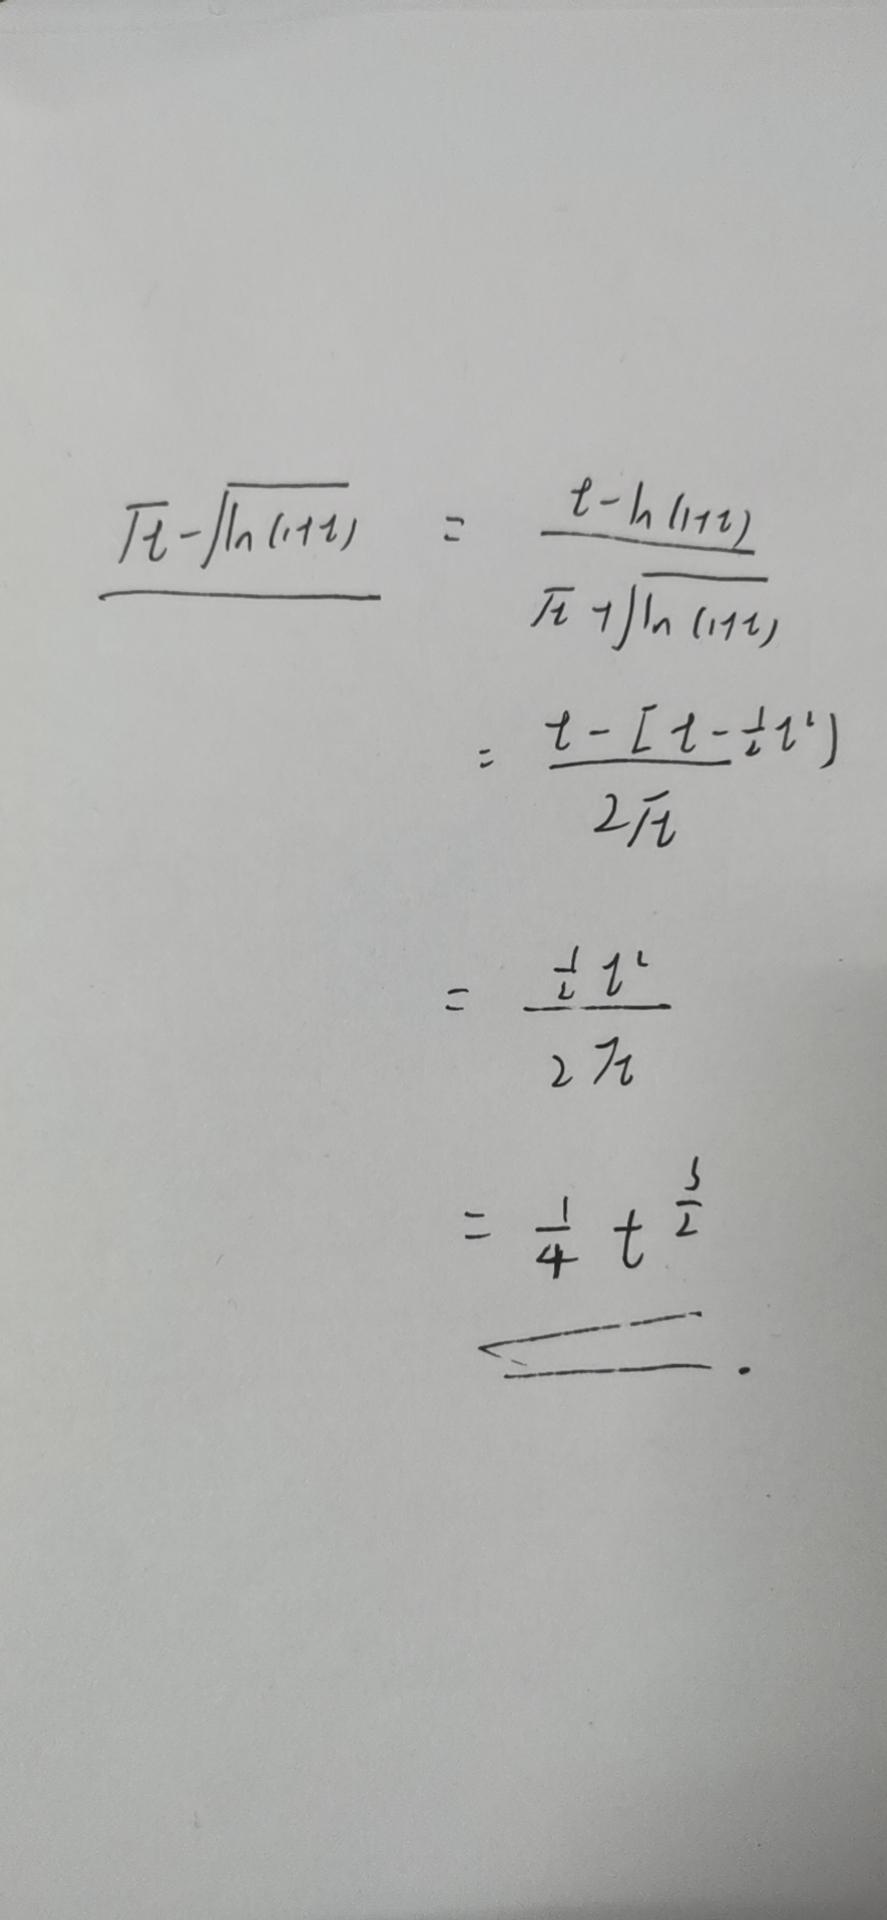 √t - √ln(1+t) = (t - ln(1+t)) / (√t + √ln(1+t))
= (t - [t - 1/2 t²)) / (2√t)
= (1/2 t²) / (2√t)
= 1/4 t^(3/2)